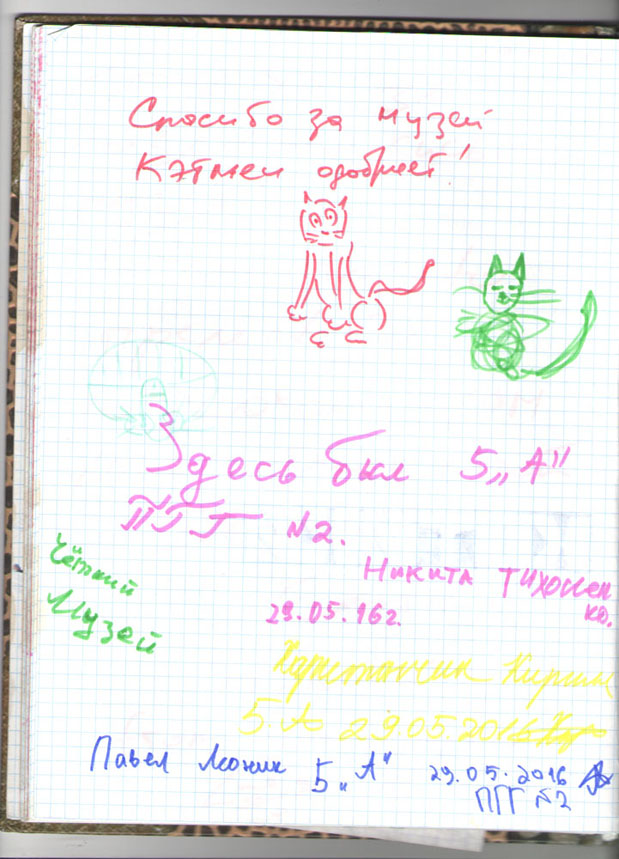 Спасибо за музей
Кэтмен одобряет!
Здесь был 5 „А"
ПГГ №2.
Чёткий
Музей
Никита Тихонен
ко.
29.05.16г.
Кирилл
5.А 29.05.2016
Павел 5 „А" 29.05.2016
ПГГ №2